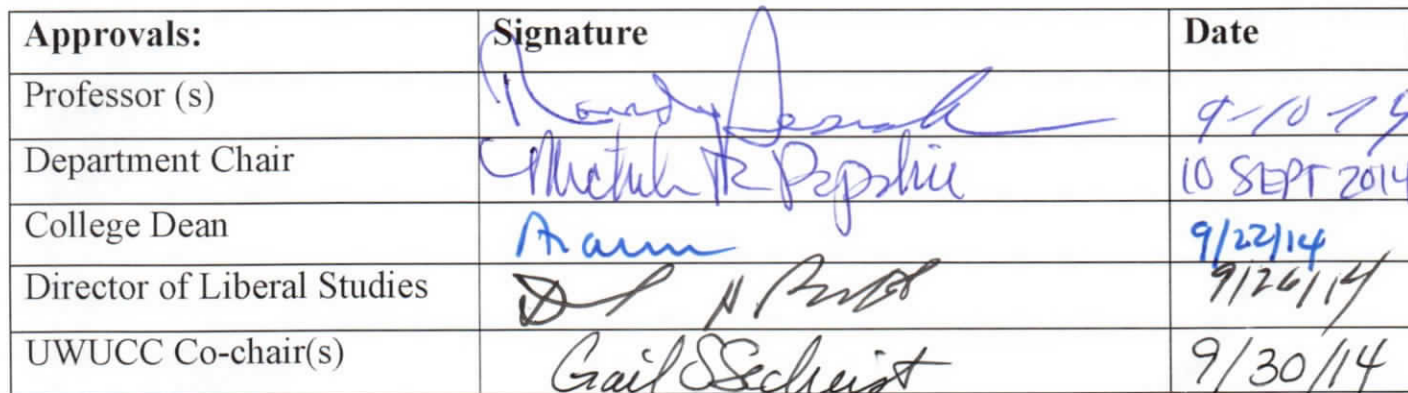 Approvals: Signature Date
Professor (s) 9-10-14
Department Chair 10 SEPT 2014
College Dean 9/22/14
Director of Liberal Studies 9/26/14
UWUCC Co-chair(s) Gail S Sechrist 9/30/14